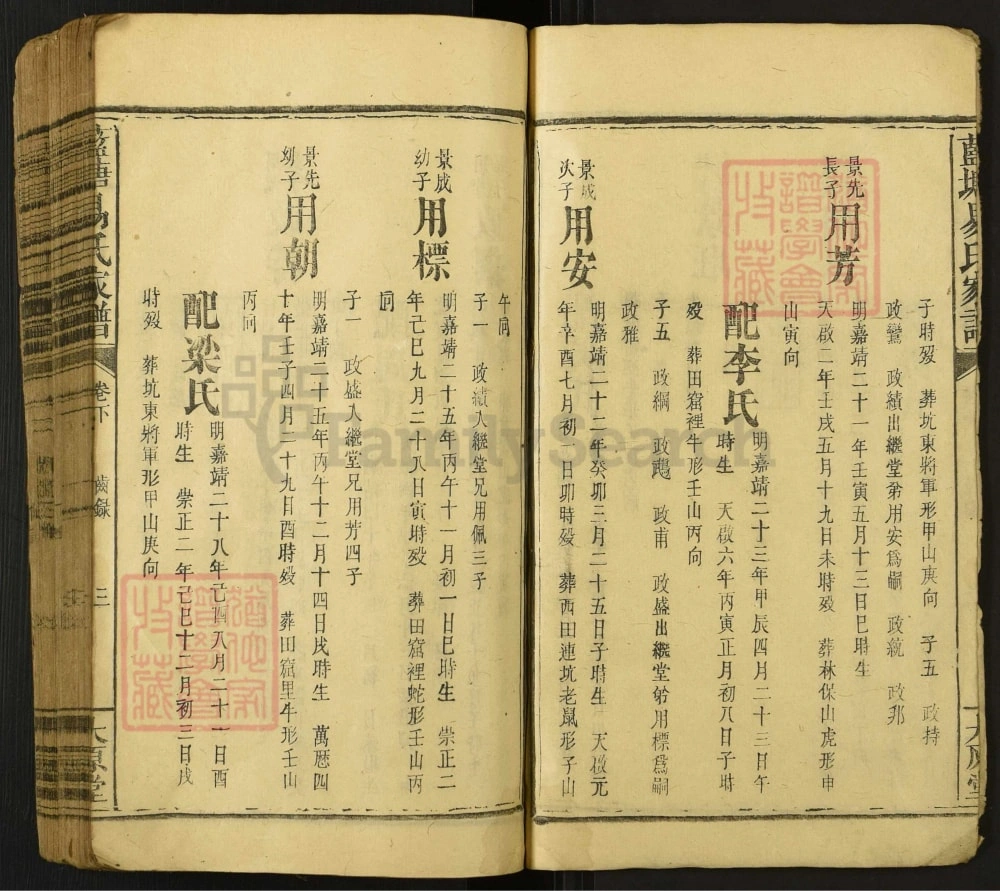 藍塘易氏家譜
子時歿 葬坑東將軍形甲山庚向 子五 政持
政鸞 政績出繼堂弟用安爲嗣 政統 政邦
景先長子 用芳
明嘉靖二十一年壬寅五月十三日巳時生
天啟二年壬戌五月十九日未時歿 葬林保山虎形申
山寅向
配李氏
明嘉靖二十三年甲辰四月二十三日午
時生 天啟六年丙寅正月初八日子時
歿 葬田窟裡牛形壬山丙向
子五 政綱 政䳸 政甫 政盛出繼堂弟用標爲嗣
政雅
景成次子 用安
明嘉靖二十二年癸卯三月二十五日子時生 天啟元
年辛酉七月初一日卯時歿 葬西田連坑老鼠形子山
午向
子一 政績入繼堂兄用佩三子
景成幼子 用標
明嘉靖二十五年丙午十一月初一日巳時生 崇正二
年己巳九月二十八日寅時歿 葬田窟裡蛇形壬山丙
向
子一 政盛入繼堂兄用芳四子
景先幼子 用朝
明嘉靖二十五年丙午十二月十四日戌時生 萬曆四
十年壬子四月二十九日酉時歿 葬田窟里牛形壬山
丙向
配梁氏
明嘉靖二十八年己酉八月二十一日酉
時生 崇正二年己巳十二月初三日戌
時歿 葬坑東將軍形甲山庚向
藍塘易氏家譜 卷下 齒錄 三 太原堂
太原堂
譜學會
收藏
譜學會
收藏
FamilySearch